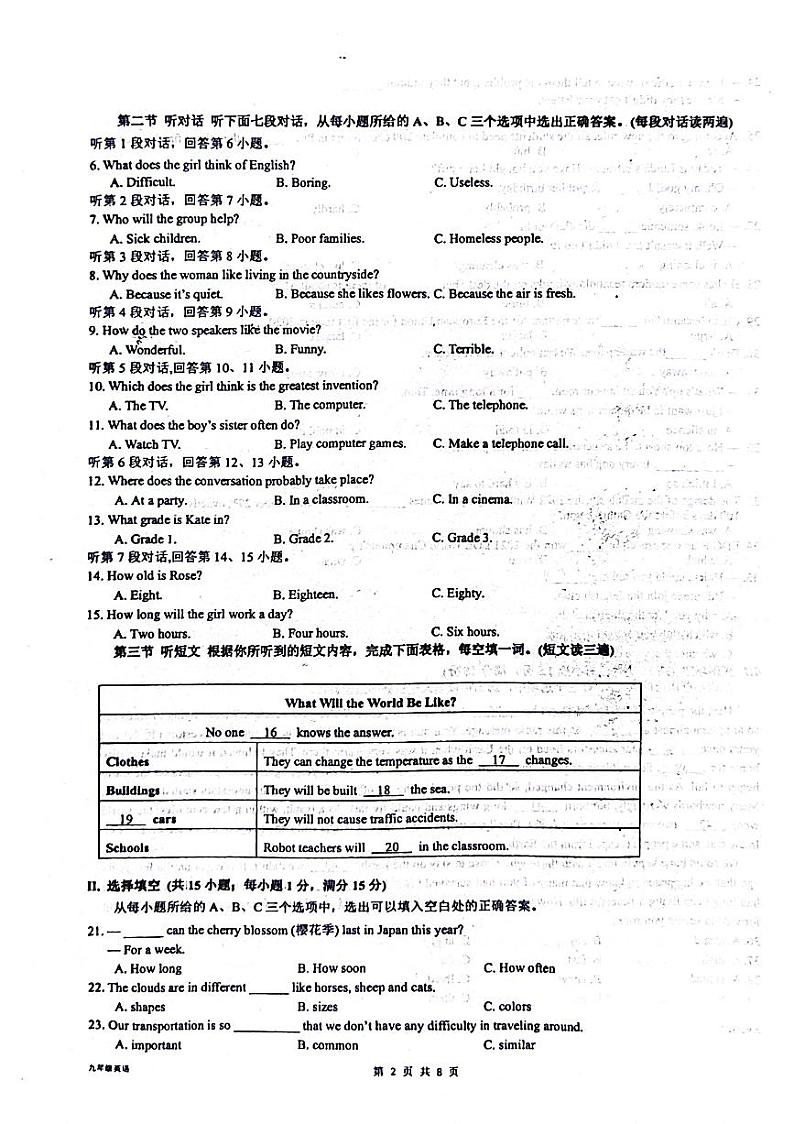 第二节 听对话 听下面七段对话，从每小题所给的 A、B、C 三个选项中选出正确答案。(每段对话读两遍)
听第 1 段对话，回答第 6 小题。
6. What does the girl think of English?
A. Difficult. B. Boring. C. Useless.
听第 2 段对话，回答第 7 小题。
7. Who will the group help?
A. Sick children. B. Poor families. C. Homeless people.
听第 3 段对话，回答第 8 小题。
8. Why does the woman like living in the countryside?
A. Because it's quiet. B. Because she likes flowers. C. Because the air is fresh.
听第 4 段对话，回答第 9 小题。
9. How do the two speakers like the movie?
A. Wonderful. B. Funny. C. Terrible.
听第 5 段对话,回答第 10、11 小题。
10. Which does the girl think is the greatest invention?
A. The TV. B. The computer. C. The telephone.
11. What does the boy's sister often do?
A. Watch TV. B. Play computer games. C. Make a telephone call.
听第 6 段对话，回答第 12、13 小题。
12. Where does the conversation probably take place?
A. At a party. B. In a classroom. C. In a cinema.
13. What grade is Kate in?
A. Grade 1. B. Grade 2. C. Grade 3.
听第 7 段对话,回答第 14、15 小题。
14. How old is Rose?
A. Eight. B. Eighteen. C. Eighty.
15. How long will the girl work a day?
A. Two hours. B. Four hours. C. Six hours.
第三节 听短文 根据你所听到的短文内容，完成下面表格，每空填一词。(短文读三遍)
What Will the World Be Like?
No one 16 knows the answer.
Clothes They can change the temperature as the 17 changes.
Buildings They will be built 18 the sea.
19 cars They will not cause traffic accidents.
Schools Robot teachers will 20 in the classroom.
II. 选择填空 (共 15 小题；每小题 1 分，满分 15 分)
从每小题所给的 A、B、C 三个选项中，选出可以填入空白处的正确答案。
21. — ______ can the cherry blossom (樱花季) last in Japan this year?
— For a week.
A. How long B. How soon C. How often
22. The clouds are in different ______ like horses, sheep and cats.
A. shapes B. sizes C. colors
23. Our transportation is so __________ that we don't have any difficulty in traveling around.
A. important B. common C. similar
九年级英语 第 2 页 共 8 页